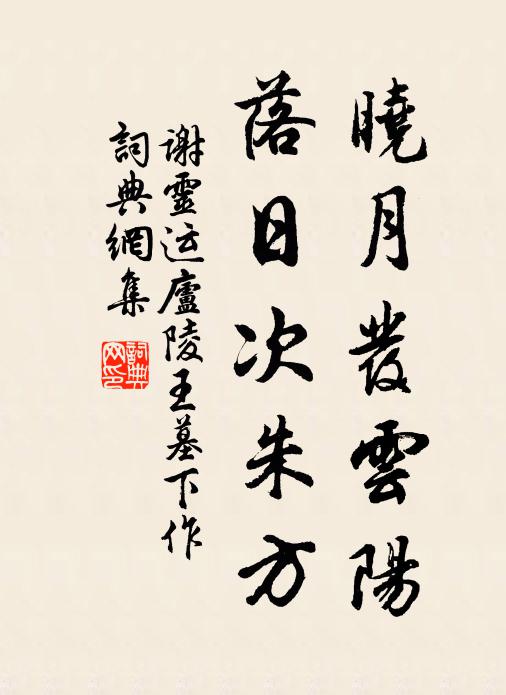 曉月發雲陽
落日次朱方
谢靈运廬陵王墓下作
詞典網集
詞典網印